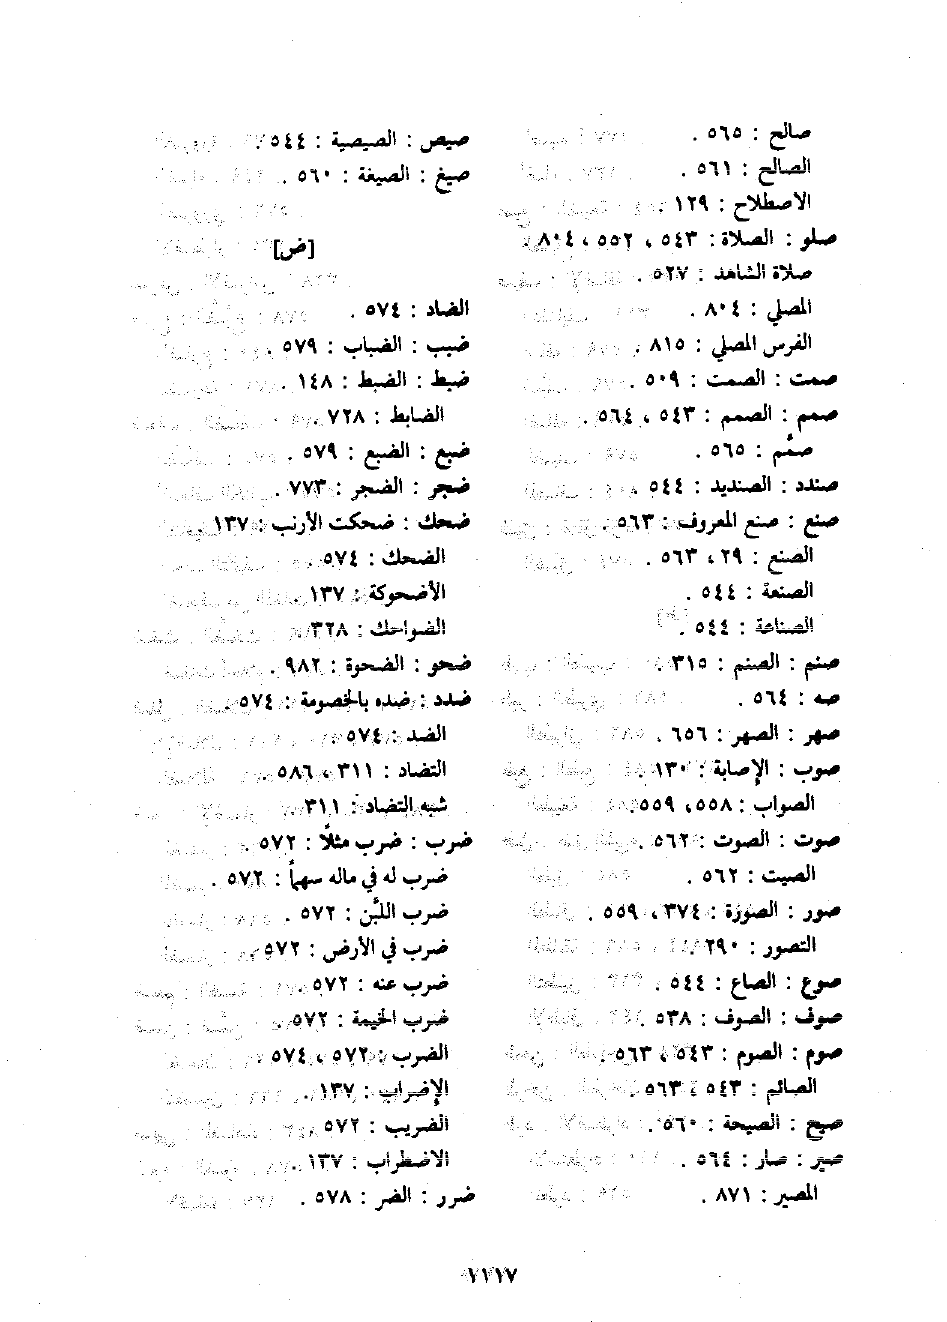 صالح : ٥٦٥ .
الصالح : ٥٦١ .
الاصطلاح : ١٢٩ .
صلو : الصلاة : ٥٤٣ ، ٥٥٢ ، ٨٠٤ .
صلاة الشاهد : ٥٢٧ .
المصلي : ٨٠٤ .
الفرس المصلي : ٨١٥ .
صمت : الصمت : ٥٠٩ .
صمم : الصمم : ٥٤٣ ، ٥٦٤ .
صمَّم : ٥٦٥ .
صندد : الصنديد : ٥٤٤ .
صنع : صنع المعروف : ٥٦٣ .
الصنع : ٢٩ ، ٥٦٣ .
الصنعة : ٥٤٤ .
الصناعة : ٥٤٤ .
صنم : الصنم : ٣١٥ .
صه : ٥٦٤ .
صهر : الصهر : ٦٥٦ .
صوب : الإصابة : ١٣٠ .
الصواب : ٥٥٨ ، ٥٥٩ .
صوت : الصوت : ٥٦٢ .
الصيت : ٥٦٢ .
صور : الصورة : ٣٧٤ ، ٥٥٩ .
التصور : ٢٩٠ .
صوع : الصاع : ٥٤٤ .
صوف : الصوف : ٥٣٨ .
صوم : الصوم : ٥٤٣ ، ٥٦٣ .
الصائم : ٥٤٣ ، ٥٦٣ .
صيح : الصيحة : ٥٦٠ .
صير : صار : ٥٦٤ .
المصير : ٨٧١ .
صيص : الصيصية : ٥٤٤ .
صيغ : الصيغة : ٥٦٠ .
[ض]
الضاد : ٥٧٤ .
ضبب : الضباب : ٥٧٩ .
ضبط : الضبط : ١٤٨ .
الضابط : ٧٢٨ .
ضبع : الضبع : ٥٧٩ .
ضجر : الضجر : ٧٧٣ .
ضحك : ضحكت الأرنب : ١٣٧ .
الضحك : ٥٧٤ .
الأضحوكة : ١٣٧ .
الضواحك : ٣٢٨ .
ضحو : الضحوة : ٩٨٢ .
ضدد : ضده بالخصومة : ٥٧٤ .
الضد : ٥٧٤ .
التضاد : ٣١١ ، ٥٨٦ .
شبه التضاد : ٣١١ .
ضرب : ضرب مثلاً : ٥٧٢ .
ضرب له في ماله سهماً : ٥٧٢ .
ضرب اللَّبن : ٥٧٢ .
ضرب في الأرض : ٥٧٢ .
ضرب عنه : ٥٧٢ .
ضرب الخيمة : ٥٧٢ .
الضرب : ٥٧٢ ، ٥٧٤ .
الإضراب : ١٣٧ .
الضريب : ٥٧٢ .
الاضطراب : ١٣٧ .
ضرر : الضر : ٥٧٨ .
١١١٧